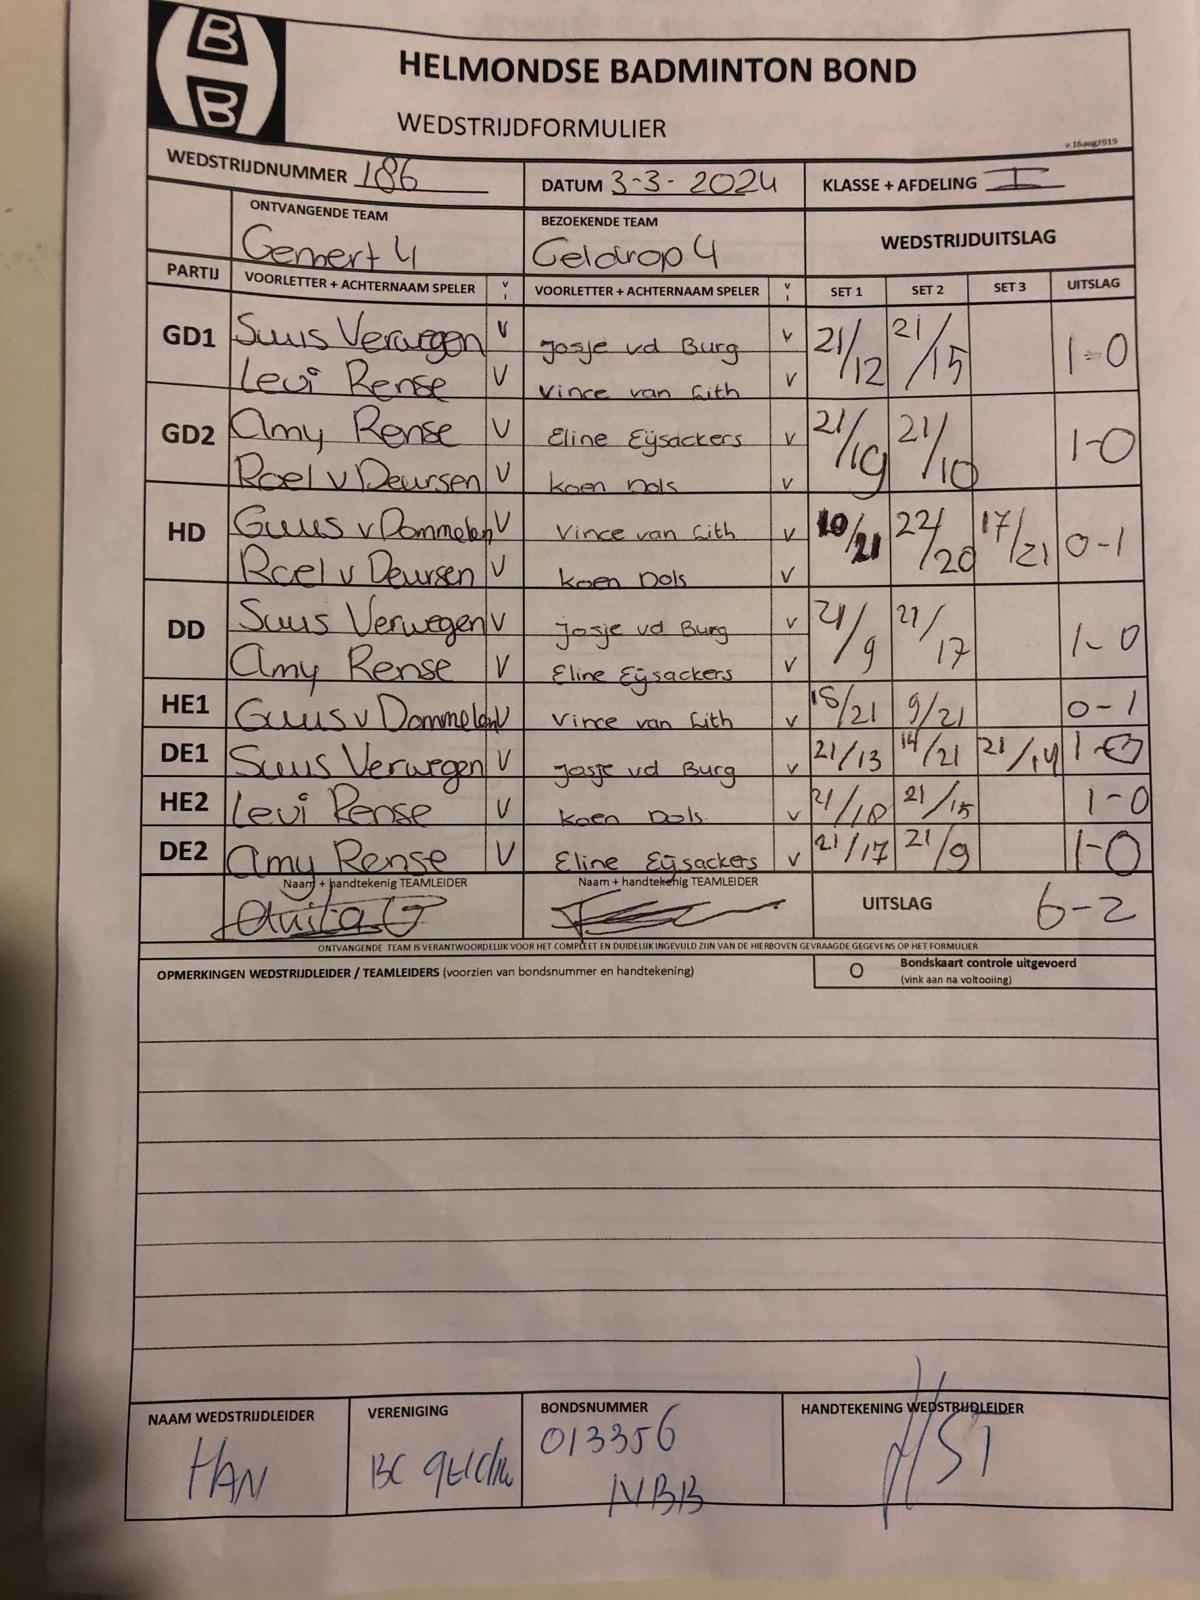 B
B
HELMONDSE BADMINTON BOND
WEDSTRIJDFORMULIER
v 16aug2019
WEDSTRIJDNUMMER 186 DATUM 3-3-2024 KLASSE + AFDELING I
ONTVANGENDE TEAM BEZOEKENDE TEAM WEDSTRIJDUITSLAG
Gemert 4 Geldrop 4
PARTIJ VOORLETTER + ACHTERNAAM SPELER V I VOORLETTER + ACHTERNAAM SPELER V I SET 1 SET 2 SET 3 UITSLAG
GD1 Suus Verwegen V Josje vd Burg V 21/12 21/15 1-0
Levi Rense V Vince van Lith V
GD2 Amy Rense V Eline Eijsackers V 21/19 21/10 1-0
Roel v Deursen V Koen Dols V
HD Guus v Dommelen V Vince van Lith V 10/21 22/20 17/21 0-1
Roel v Deursen V Koen Dols V
DD Suus Verwegen V Josje vd Burg V 21/9 21/17 1-0
Amy Rense V Eline Eijsackers V
HE1 Guus v Dommelen V Vince van Lith V 18/21 9/21 0-1
DE1 Suus Verwegen V Josje vd Burg V 21/13 14/21 21/14 1-0
HE2 Levi Rense V Koen Dols V 21/18 21/15 1-0
DE2 Amy Rense V Eline Eijsackers V 21/17 21/9 1-0
Naam + handtekenig TEAMLEIDER Naam + handtekenig TEAMLEIDER UITSLAG 6-2
Anita
ONTVANGENDE TEAM IS VERANTWOORDELIJK VOOR HET COMPLEET EN DUIDELIJK INGEVULD ZIJN VAN DE HIERBOVEN GEVRAAGDE GEGEVENS OP HET FORMULIER
OPMERKINGEN WEDSTRIJDLEIDER / TEAMLEIDERS (voorzien van bondsnummer en handtekening) O Bondskaart controle uitgevoerd
(vink aan na voltooiing)
NAAM WEDSTRIJDLEIDER VERENIGING BONDSNUMMER HANDTEKENING WEDSTRIJDLEIDER
HAN BC 013356
NBB